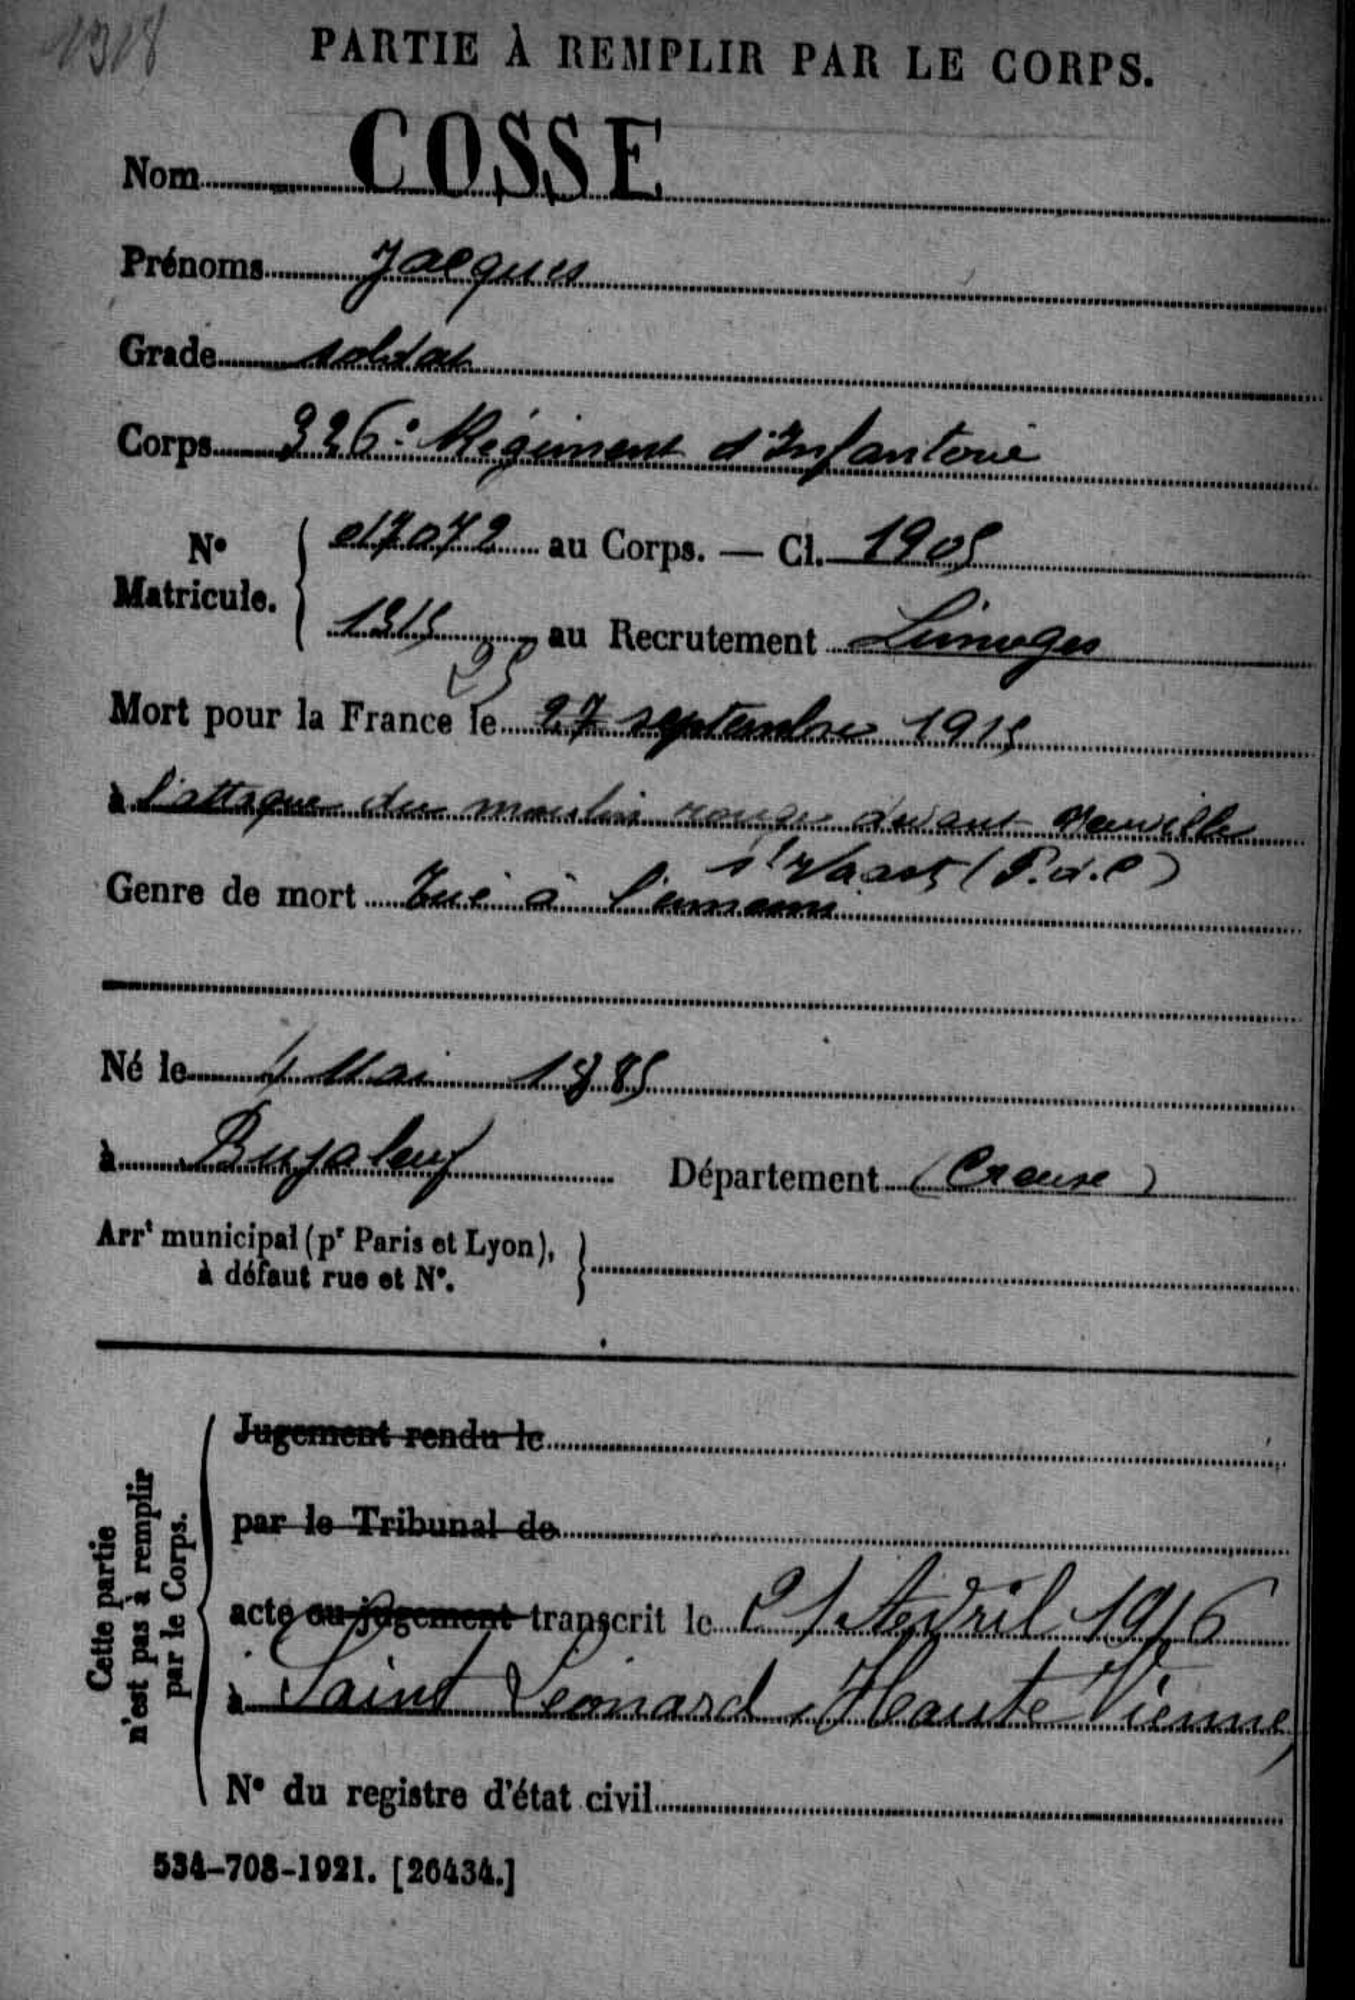 1318
PARTIE À REMPLIR PAR LE CORPS.
Nom COSSE
Prénoms Jacques
Grade soldat
Corps 326e Régiment d'Infanterie
N° Matricule. { 017072 au Corps. — Cl. 1905
1315 au Recrutement Limoges
25
Mort pour la France le 27 septembre 1915
à l'attaque du moulin rouge devant Neuville
St Vaast (P.d.C)
Genre de mort Tué à l'ennemi
Né le 4 Mai 1885
à Bujaleuf Département (Creuse)
Arrt municipal (pr Paris et Lyon),
à défaut rue et N°.
Cette partie
n'est pas à remplir
par le Corps.
Jugement rendu le
par le Tribunal de
acte ou jugement transcrit le 21 Avril 1916
à Saint Léonard (Haute Vienne)
N° du registre d'état civil
534-708-1921. [26434.]